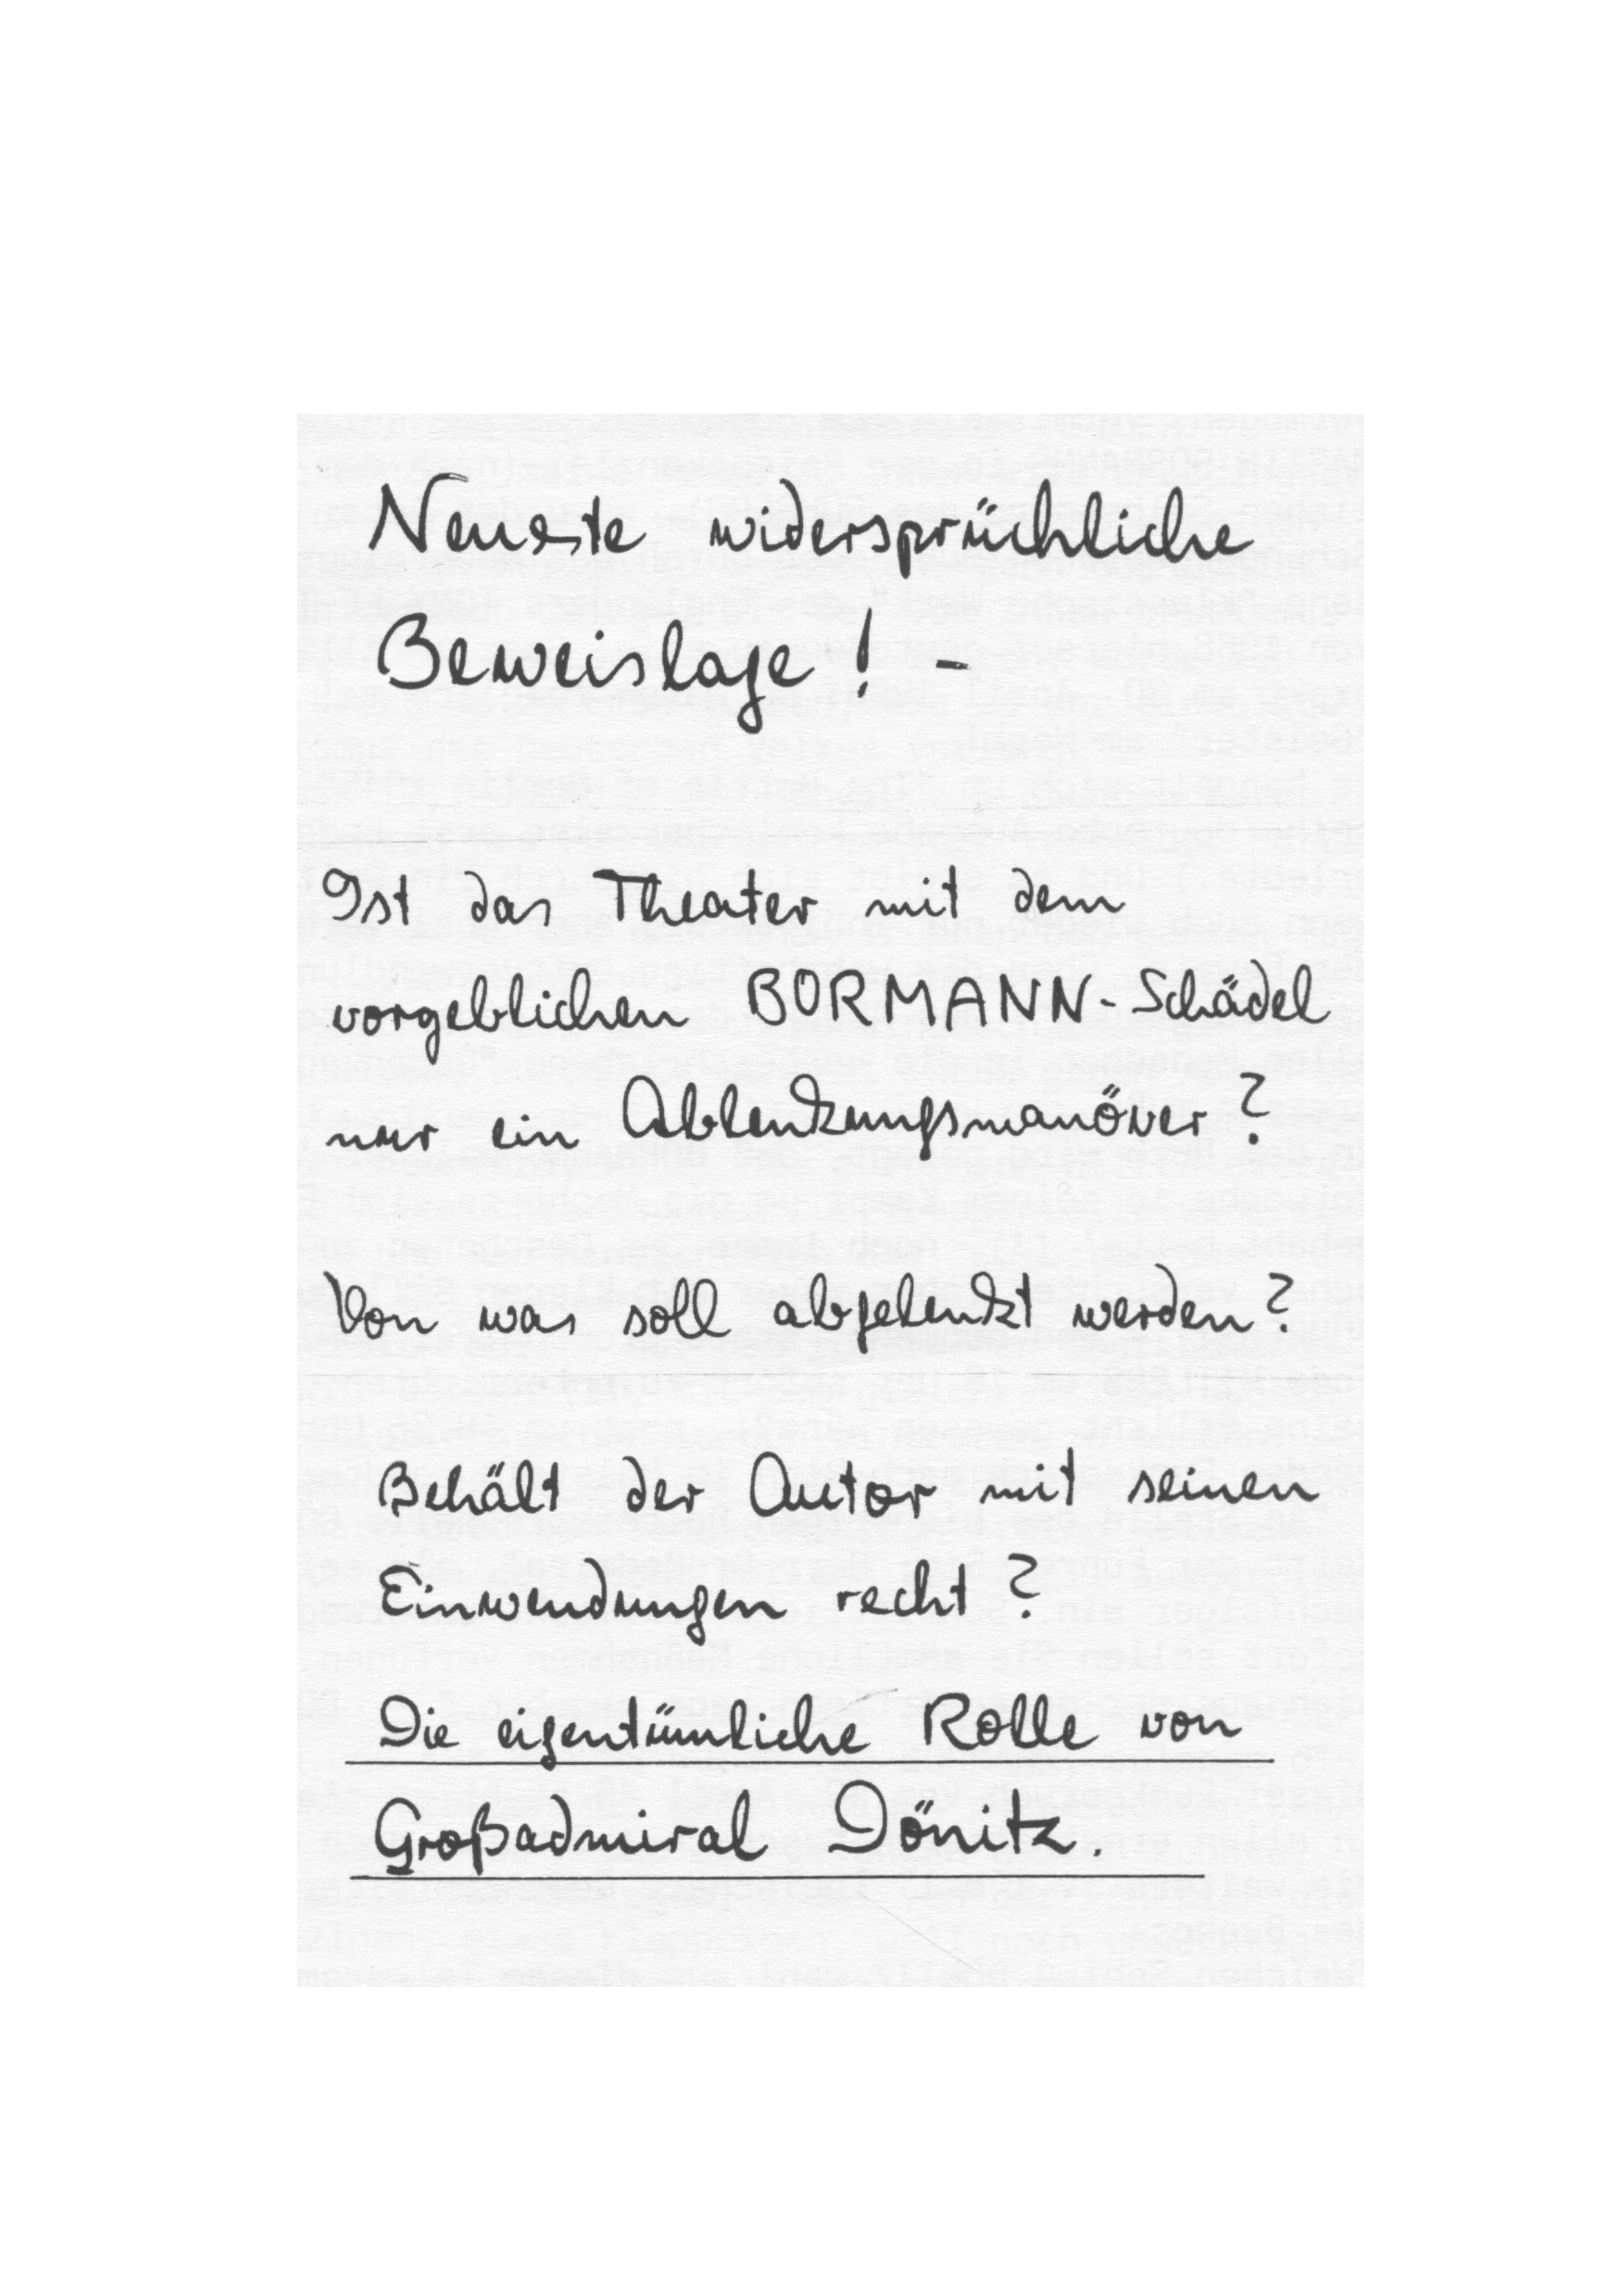 Neueste widersprüchliche
Beweislage! -
Ist das Theater mit dem
vorgeblichen BORMANN-Schädel
nur ein Ablenkungsmanöver?
Von was soll abgelenkt werden?
Behält der Autor mit seinen
Einwendungen recht?
Die eigentümliche Rolle von
Großadmiral Dönitz.